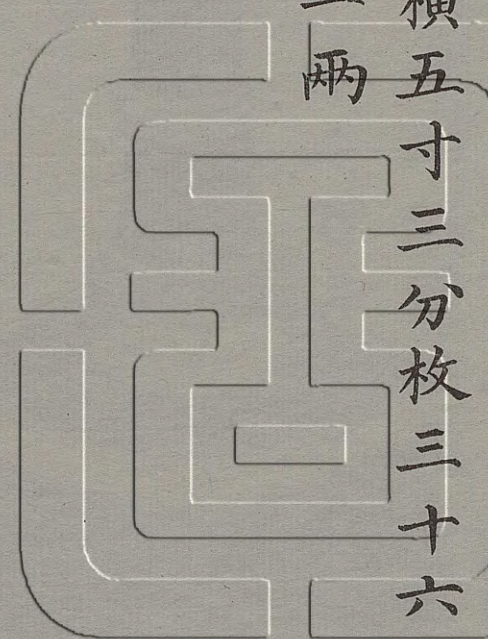 橫五寸三分枚三十六
兩